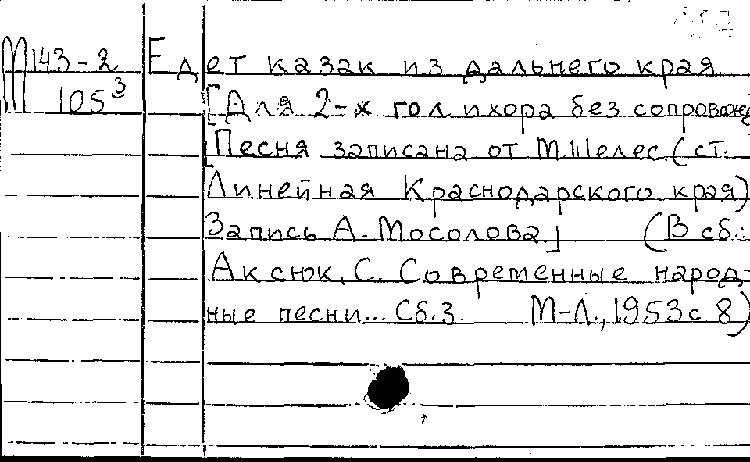 М143-2 Едет казак из дальнего края
105³ [Для 2-х гол и хора без сопровожд
Песня записана от М. Шелес (ст.
Линейная Краснодарского края)
Запись А. Мосолова] (В сб.:
Аксюк, С. Современные народ-
ные песни... Сб.3 М-Л., 1953 с 8)